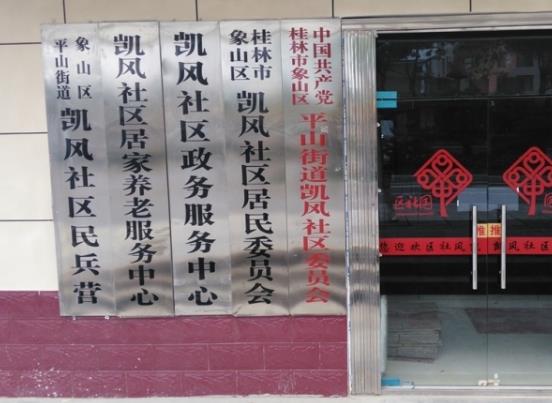 中国共产党
桂林市象山区
平山街道凯风社区委员会
桂林市
象山区
凯风社区居民委员会
凯风社区政务服务中心
凯风社区居家养老服务中心
象山区
平山街道
凯风社区民兵营
区社风
推
凯风社区